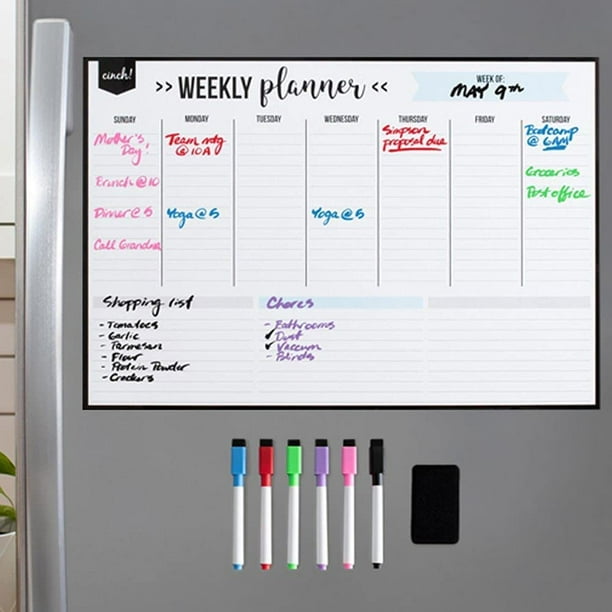 cinch!
>> WEEKLY planner <<
WEEK OF:
MAY 9TH
SUNDAY MONDAY TUESDAY WEDNESDAY THURSDAY FRIDAY SATURDAY
Mother's
Day!
Brunch @ 10
Dinner @ 5
Call Grandma
Team mtg
@ 10A
Yoga @ 5
Yoga @ 5
Simpson
proposal due
Bootcamp
@ 6AM
Groceries
Post office
Shopping list
- Tomatoes
- Garlic
- Parmesan
- Flour
- Protein Powder
- Crackers
Chores
- Bathrooms
✓ Dust
✓ Vacuum
- Blinds